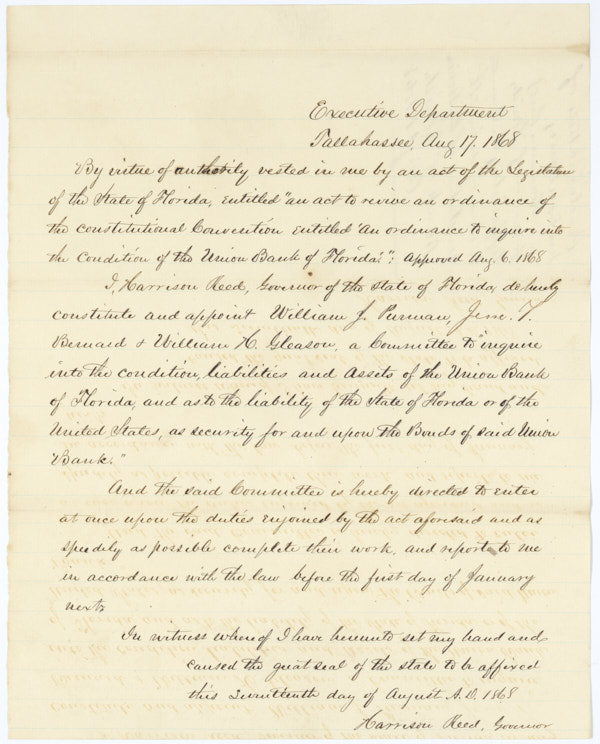 Executive Department
Tallahassee, Aug 17. 1868
By virtue of authority vested in me by an act of the Legislature
of the State of Florida, entitled "an act to revive an ordinance of
the constitutional Convention entitled 'An ordinance to inquire into
the Condition of the Union Bank of Florida.'": Approved Aug. 6. 1868
I, Harrison Reed, Governor of the State of Florida, do hereby
constitute and appoint William J. Purman, Jesse. T.
Bernard & William H. Gleason, a Committee to "inquire
into the condition, liabilities and assets of the Union Bank
of Florida, and as to the liability of the State of Florida or of the
United States, as security for and upon the Bonds of said Union
Bank."
And the said Committee is hereby directed to enter
at once upon the duties enjoined by the act aforesaid and as
speedily as possible complete their work, and report to me
in accordance with the law before the first day of January
next.
In witness whereof I have hereunto set my hand and
caused the great seal of the state to be affixed
this seventeenth day of August A.D. 1868
Harrison Reed, Governor